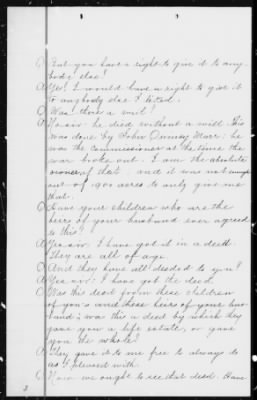 Q But you have a right to give it to any
body else?
A Yes! I would have a right to give it
to anybody else I liked.
Q Was there a will?
A No sir: he died without a will. This
was done by John Marr: he
was the commissioner at the time the
war broke out. I am the absolute
owner of that, and it was not enough
out of 900 acres to only give me
that.
Q Have your children who are the
heirs of your husband ever agreed
to this?
A Yes sir: I have got it in a deed.
They are all of age.
Q And they have all deeded to you?
A Yes sir: I have got the deed.
Q Was this deed from these children
of yours and these heirs of your hus
band; was this a deed by which they
gave you a life estate, or gave
you the whole?
A They gave it to me free to always do
as I pleased with.
Q Now, we ought to see that deed. Have